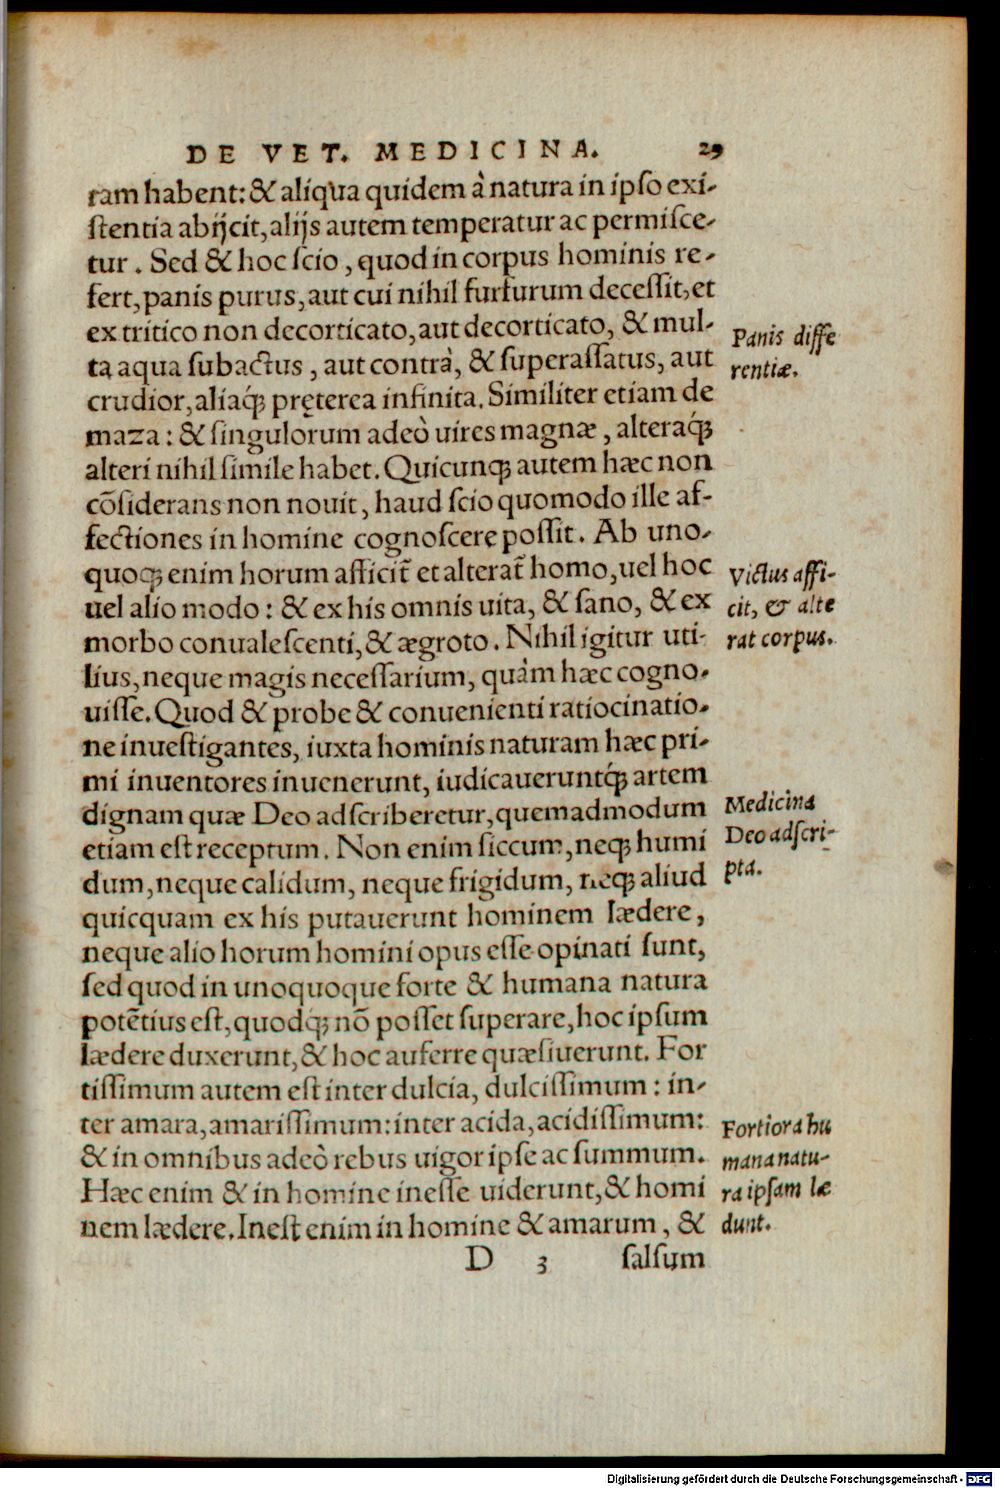 DE VET. MEDICINA. 29
ram habent: & aliqua quidem à natura in ipso exi-
stentia abijcit, alijs autem temperatur ac permisce-
tur. Sed & hoc scio, quod in corpus hominis re-
fert, panis purus, aut cui nihil furfurum decessit, et
ex tritico non decorticato, aut decorticato, & mul-
ta aqua subactus, aut contrà, & superassatus, aut
crudior, aliaq́; pręterea infinita. Similiter etiam de
maza: & singulorum adeò uires magnæ, alteraq́;
alteri nihil simile habet. Quicunq; autem hæc non
cōsiderans non nouit, haud scio quomodo ille af-
fectiones in homine cognoscere possit. Ab uno-
quoq; enim horum afficit̃ et alterat̃ homo, uel hoc
uel alio modo: & ex his omnis uita, & sano, & ex
morbo conualescenti, & ægroto. Nihil igitur uti-
lius, neque magis necessarium, quàm hæc cogno-
uisse. Quod & probe & conuenienti ratiocinatio-
ne inuestigantes, iuxta hominis naturam hæc pri-
mi inuentores inuenerunt, iudicaueruntq́; artem
dignam quæ Deo adscriberetur, quemadmodum
etiam est receptum. Non enim siccum, neq; humi
dum, neque calidum, neque frigidum, neq; aliud
quicquam ex his putauerunt hominem lædere,
neque alio horum homini opus esse opinati sunt,
sed quod in unoquoque forte & humana natura
potētius est, quodq́; nō posset superare, hoc ipsum
lædere duxerunt, & hoc auferre quæsiuerunt. For
tissimum autem est inter dulcia, dulcissimum: in-
ter amara, amarissimum: inter acida, acidissimum:
& in omnibus adeò rebus uigor ipse ac summum.
Hæc enim & in homine inesse uiderunt, & homi
nem lædere. Inest enim in homine & amarum, &
D 3 salsum
Panis diffe
rentiæ.
Victus affi-
cit, & alte
rat corpus.
Medicina
Deo adscri-
pta.
Fortiora hu
mana natu-
ra ipsam læ
dunt.
Digitalisierung gefördert durch die Deutsche Forschungsgemeinschaft - DFG